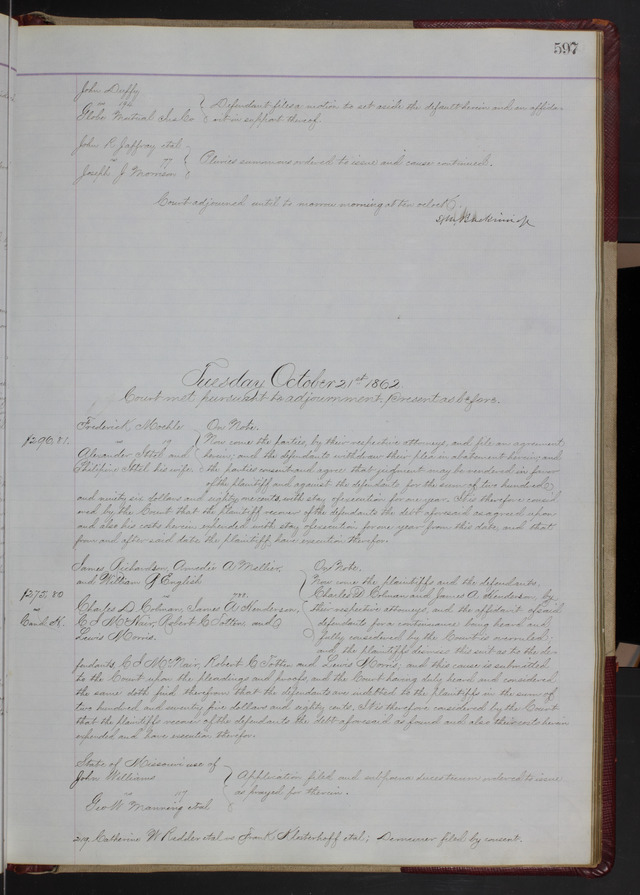 597
John Duffy
vs 196 } Defendant files a motion to set aside the default herein and an affida-
Globe Mutual Ins Co } vit in support thereof.
John R Jaffray etal
vs 77 } Pluries summons ordered to issue and cause continued.
Joseph J Morrison
Court adjourned until to morrow morning at ten oclock.
Tuesday October 21st 1862
Court met pursuant to adjournment, present as before.
Frederick, Moehle On Note.
vs Now come the parties, by their respective attorneys, and file an agreement
$296.81. Alexander Ittel and herein; and the defendants withdraw their plea in abatement herein; and
Philipine Ittel his wife. the parties consent and agree that judgment may be rendered in favor
of the plaintiff and against the defendants for the sum of two hundred
and ninety six dollars and eighty one cents with stay of execution for one year. It is therefore consid-
ered by the Court that the plaintiff recover of the defendants the debt aforesaid as agreed upon
and also his costs herein expended with stay of execution for one year from this date, and that
from and after said date the plaintiff have execution therefor.
James Richardson, Amedie A Mellier, On Note.
and William G English Now come the plaintiffs and the defendants,
$275.80 vs Charles D Colman and James A. Henderson, by
Charles D Colman, James A Henderson, their respective attorneys, and the affidavit of said
C L J McNair, Robert C Totten and defendants for a continuance being heard and
Lewis Morris. fully considered by the Court is overruled;
and the plaintiffs dismiss this suit as to the de-
fendants C L J McNair, Robert C Totten and Lewis Morris; and this cause is submitted
to the Court upon the pleadings and proofs, and the Court having duly heard and considered
the same doth find therefrom that the defendants are indebted to the plaintiffs in the sum of
two hundred and seventy five dollars and eighty cents. It is therefore considered by the Court
that the plaintiffs recover of the defendants the debt aforesaid as found and also their costs herein
expended and have execution therefor.
State of Missouri use of
John Williams } Application filed and subpoena duces tecum ordered to issue
vs 97 } as prayed for therein.
Geo W Manning etal
219 Catherine W Radder etal vs Frank Klosterhoff etal; Demurrer filed by consent.